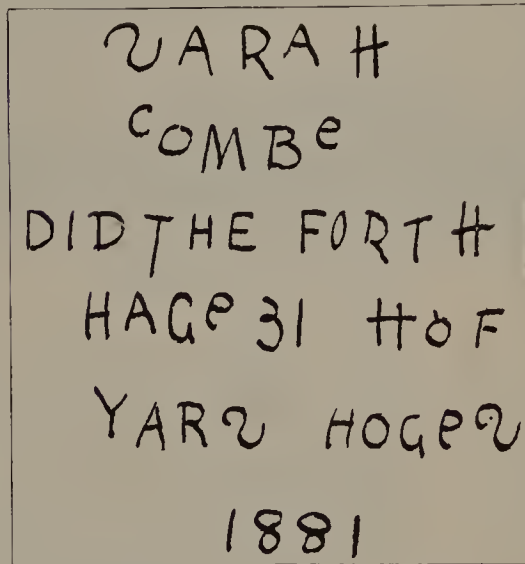 SARAH
COMBe
DID THE FORTH
HAGe 31 HOF
YARS HOGeS
1881